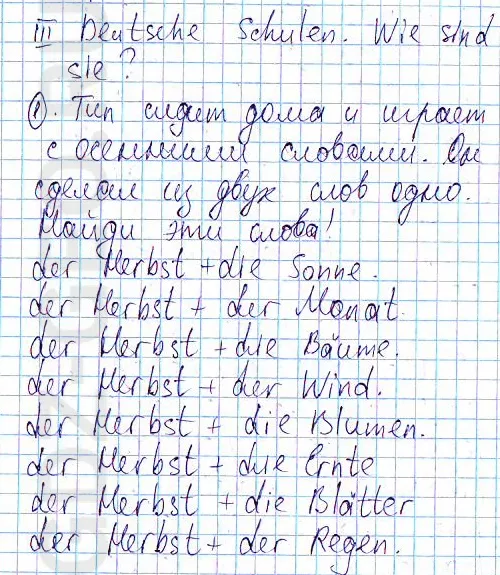 III Deutsche Schulen. Wie sind
sie?
①. Тип сидит дома и играет
с осенними словами. Он
сделал из двух слов одно.
Найди эти слова!
der Herbst + die Sonne.
der Herbst + der Monat.
der Herbst + die Bäume.
der Herbst + der Wind.
der Herbst + die Blumen.
der Herbst + die Ernte
der Herbst + die Blätter
der Herbst + der Regen.